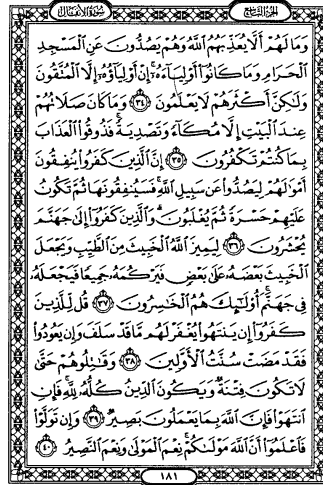 سُورَةُ الأَنفَالِ الجُزْءُ التَّاسِعُ
وَمَا لَهُمْ أَلَّا يُعَذِّبَهُمُ اللَّهُ وَهُمْ يَصُدُّونَ عَنِ الْمَسْجِدِ
الْحَرَامِ وَمَا كَانُوا أَوْلِيَاءَهُ إِنْ أَوْلِيَاؤُهُ إِلَّا الْمُتَّقُونَ
وَلَٰكِنَّ أَكْثَرَهُمْ لَا يَعْلَمُونَ ٣٤ وَمَا كَانَ صَلَاتُهُمْ
عِندَ الْبَيْتِ إِلَّا مُكَاءً وَتَصْدِيَةً فَذُوقُوا الْعَذَابَ
بِمَا كُنتُمْ تَكْفُرُونَ ٣٥ إِنَّ الَّذِينَ كَفَرُوا يُنفِقُونَ
أَمْوَالَهُمْ لِيَصُدُّوا عَن سَبِيلِ اللَّهِ فَسَيُنفِقُونَهَا ثُمَّ تَكُونُ
عَلَيْهِمْ حَسْرَةً ثُمَّ يُغْلَبُونَ وَالَّذِينَ كَفَرُوا إِلَىٰ جَهَنَّمَ
يُحْشَرُونَ ٣٦ لِيَمِيزَ اللَّهُ الْخَبِيثَ مِنَ الطَّيِّبِ وَيَجْعَلَ
الْخَبِيثَ بَعْضَهُ عَلَىٰ بَعْضٍ فَيَرْكُمَهُ جَمِيعًا فَيَجْعَلَهُ
فِي جَهَنَّمَ أُولَٰئِكَ هُمُ الْخَاسِرُونَ ٣٧ قُل لِّلَّذِينَ
كَفَرُوا إِن يَنتَهُوا يُغْفَرْ لَهُم مَّا قَدْ سَلَفَ وَإِن يَعُودُوا
فَقَدْ مَضَتْ سُنَّتُ الْأَوَّلِينَ ٣٨ وَقَاتِلُوهُمْ حَتَّىٰ
لَا تَكُونَ فِتْنَةٌ وَيَكُونَ الدِّينُ كُلُّهُ لِلَّهِ فَإِنِ
انتَهَوْا فَإِنَّ اللَّهَ بِمَا يَعْمَلُونَ بَصِيرٌ ٣٩ وَإِن تَوَلَّوْا
فَاعْلَمُوا أَنَّ اللَّهَ مَوْلَاكُمْ نِعْمَ الْمَوْلَىٰ وَنِعْمَ النَّصِيرُ ٤٠
١٨١